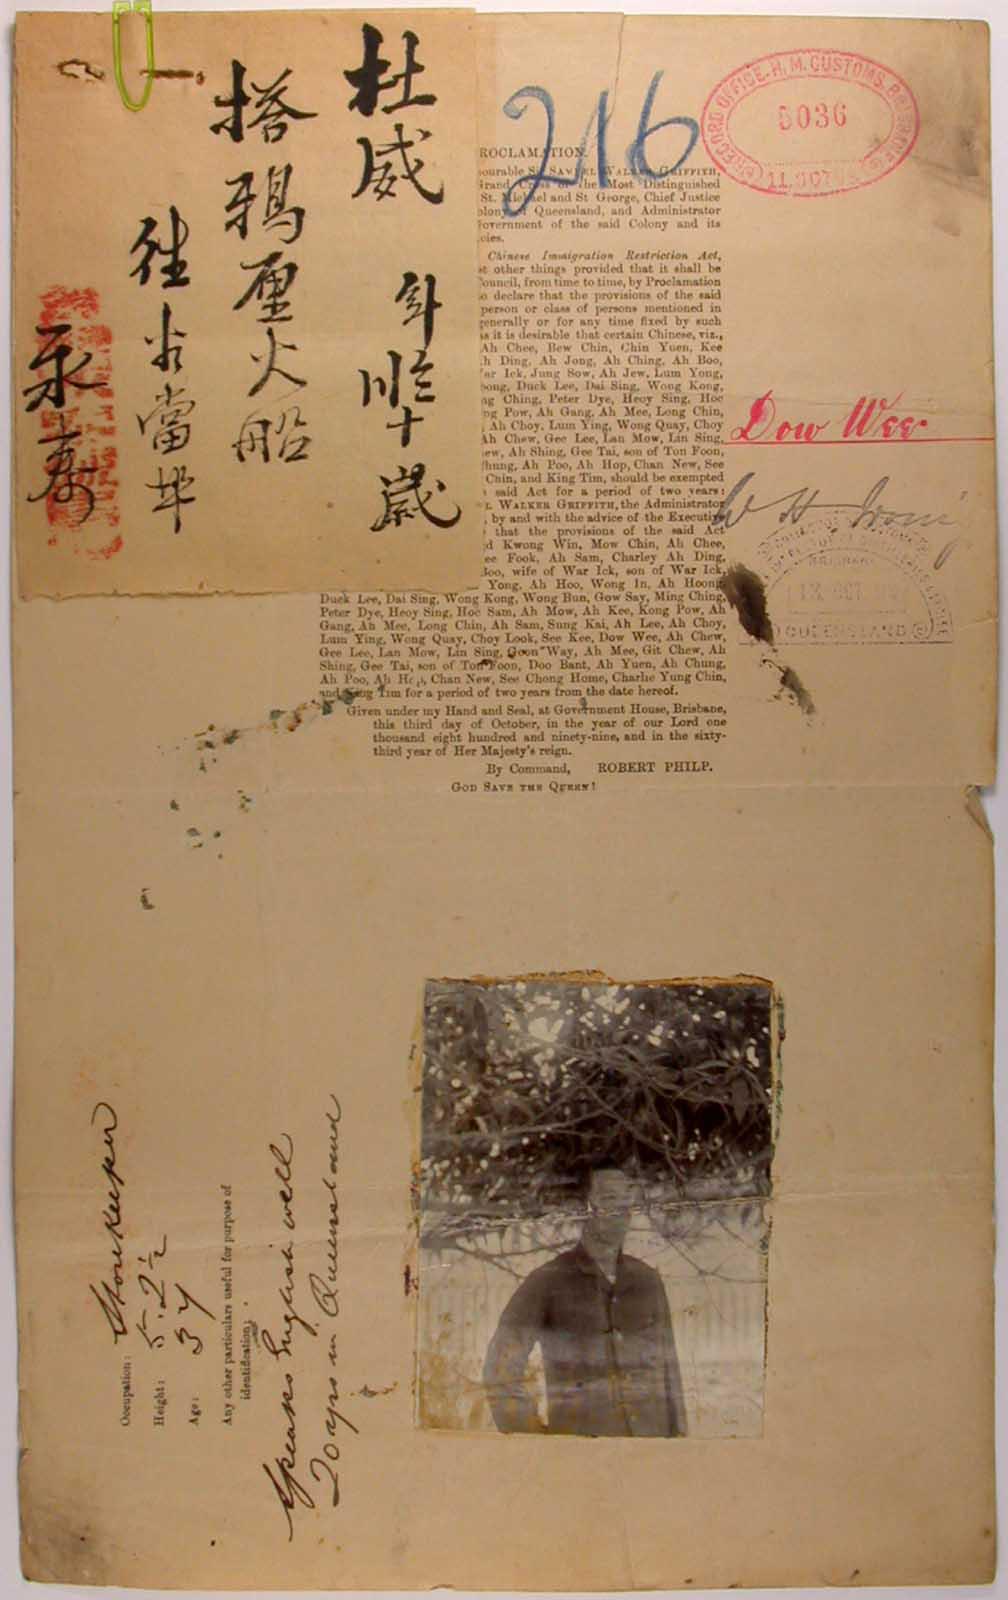 杜威
搭鴉厘火船
往
當埠
永壽
216
RECORD OFFICE. H. M. CUSTOMS. BRISBANE
5036
11. OCT
ROCLAMATION.
ourable Sir SAMUEL WALKER GRIFFITH,
Grand Cross of the Most Distinguished
St. Michael and St George, Chief Justice
olony of Queensland, and Administrator
overnment of the said Colony and its
cies.
Chinese Immigration Restriction Act,
st other things provided that it shall be
Council, from time to time, by Proclamation
o declare that the provisions of the said
person or class of persons mentioned in
generally or for any time fixed by such
s it is desirable that certain Chinese, viz.,
Ah Chee, Bew Chin, Chin Yuen, Kee
h Ding, Ah Jong, Ah Ching, Ah Boo,
ar Ick, Jung Sow, Ah Jew, Lum Yong,
oong, Duck Lee, Dai Sing, Wong Kong,
ng Ching, Peter Dye, Heoy Sing, Hoc
ng Pow, Ah Gang, Ah Mee, Long Chin,
Ah Choy, Lum Ying, Wong Quay, Choy
Ah Chew, Gee Lee, Lan Mow, Lin Sing,
ew, Ah Shing, Gee Tai, son of Ton Foon,
hung, Ah Poo, Ah Hop, Chan New, See
Chin, and King Tim, should be exempted
said Act for a period of two years:
L WALKER GRIFFITH, the Administrator
, by and with the advice of the Executive
that the provisions of the said Act
d Kwong Win, Mow Chin, Ah Chee,
ee Fook, Ah Sam, Charley Ah Ding,
Boo, wife of War Ick, son of War Ick,
Yong, Ah Hoo, Wong In, Ah Hoong,
Duck Lee, Dai Sing, Wong Kong, Wong Bun, Gow Say, Ming Ching,
Peter Dye, Heoy Sing, Hoc Sam, Ah Mow, Ah Kee, Kong Pow, Ah
Gang, Ah Mee, Long Chin, Ah Sam, Sung Kai, Ah Lee, Ah Choy,
Lum Ying, Wong Quay, Choy Look, See Kee, Dow Wee, Ah Chew,
Gee Lee, Lan Mow, Lin Sing, Goon Way, Ah Mee, Git Chew, Ah
Shing, Gee Tai, son of Ton Foon, Doo Bant, Ah Yuen, Ah Chung,
Ah Poo, Ah Hop, Chan New, See Chong Home, Charlie Yung Chin,
and King Tim for a period of two years from the date hereof.
Given under my Hand and Seal, at Government House, Brisbane,
this third day of October, in the year of our Lord one
thousand eight hundred and ninety-nine, and in the sixty-
third year of Her Majesty's reign.
By Command, ROBERT PHILP.
GOD SAVE THE QUEEN!
Dow Wee
W H Irving
BRISBANE
13. OCT
QUEENSLAND
Occupation: Storekeeper
Height: 5.2½
Age: 37
Any other particulars useful for purpose of
identification:
Speaks English well
20 yrs in Queensland